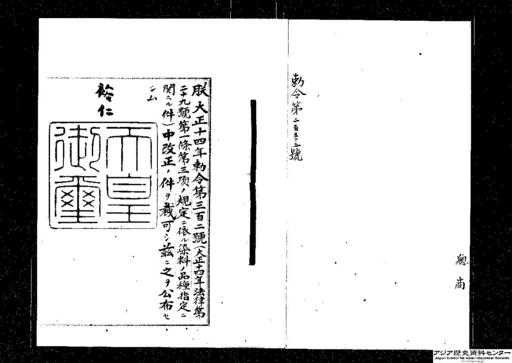 勅令第二百五十三號
朕大正十四年勅令第三百二號(大正十四年法律第
二十九號第一條第三項ノ規定ニ依ル染料ノ品種指定ニ
関スル件)中改正ノ件ヲ裁可シ茲ニ之ヲ公布セ
シム
裕仁
天皇
御璽
アジア歴史資料センター
Japan Center for Asian Historical Records